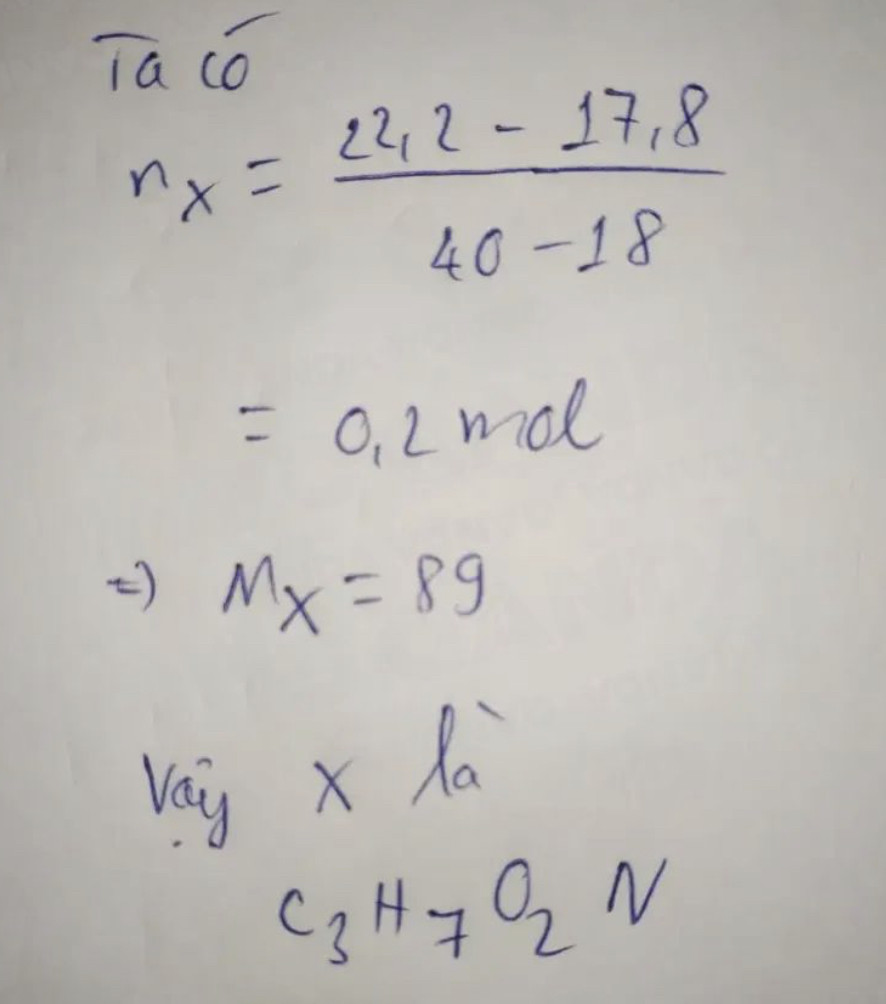 Ta có
nₓ = 22,2 - 17,8
40 - 18
= 0,2 mol
=) Mₓ = 89
Vậy X là
C₃H₇O₂N